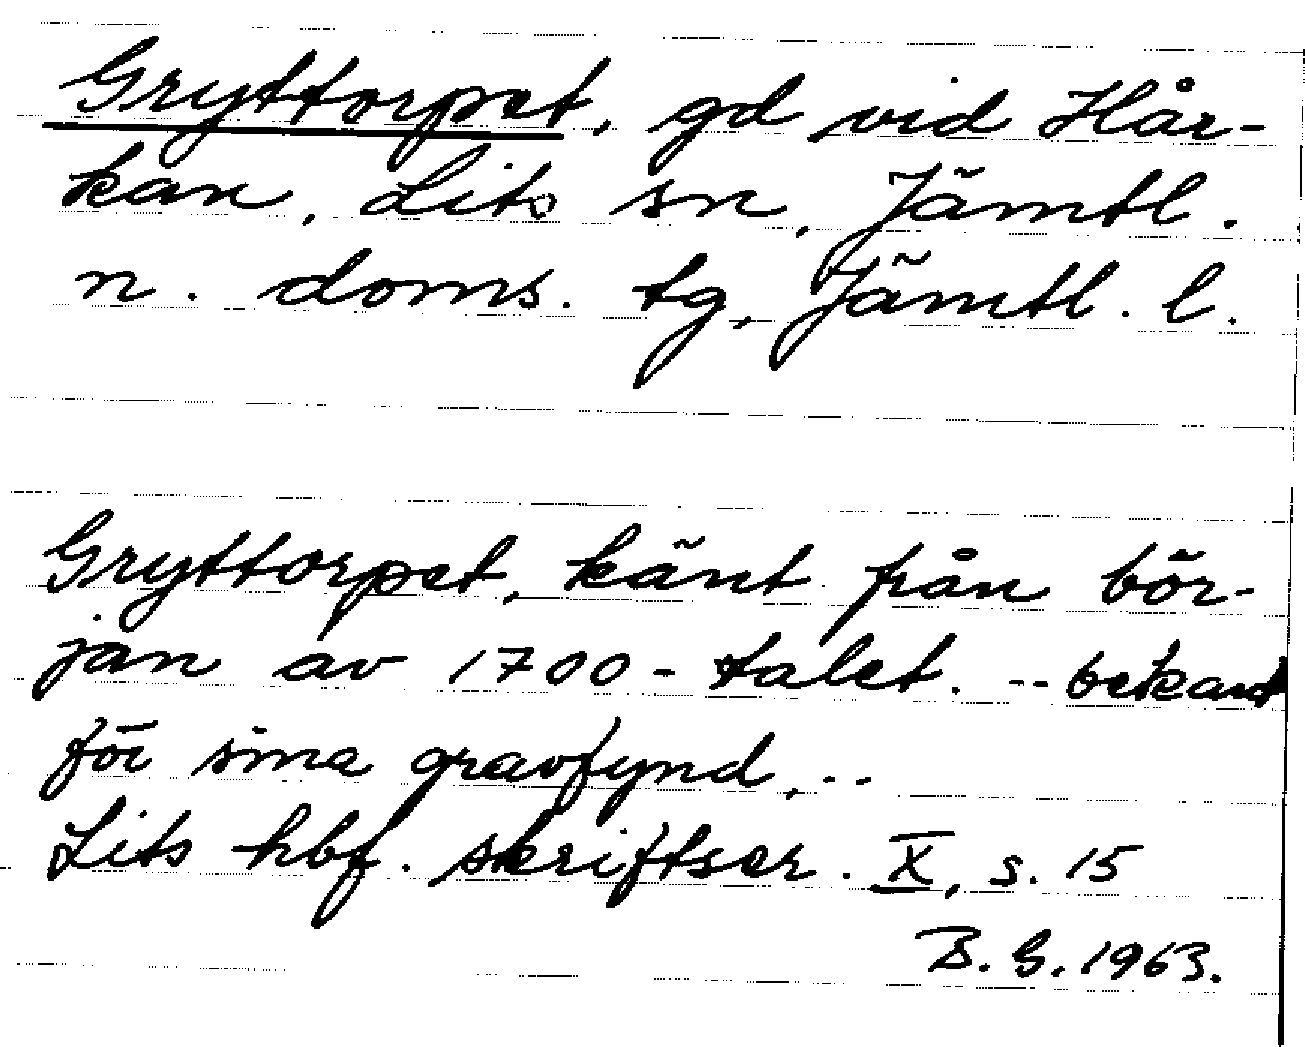 Gryttorpet, gd vid Hår-
kan, Lits sn, Jämtl.
n. doms. tg, Jämtl. l.
Gryttorpet, känt från bör-
jan av 1700-talet. -- bekant
för sina gravfynd, --
Lits hbf. skriftser. X, s. 15
B. G. 1963.